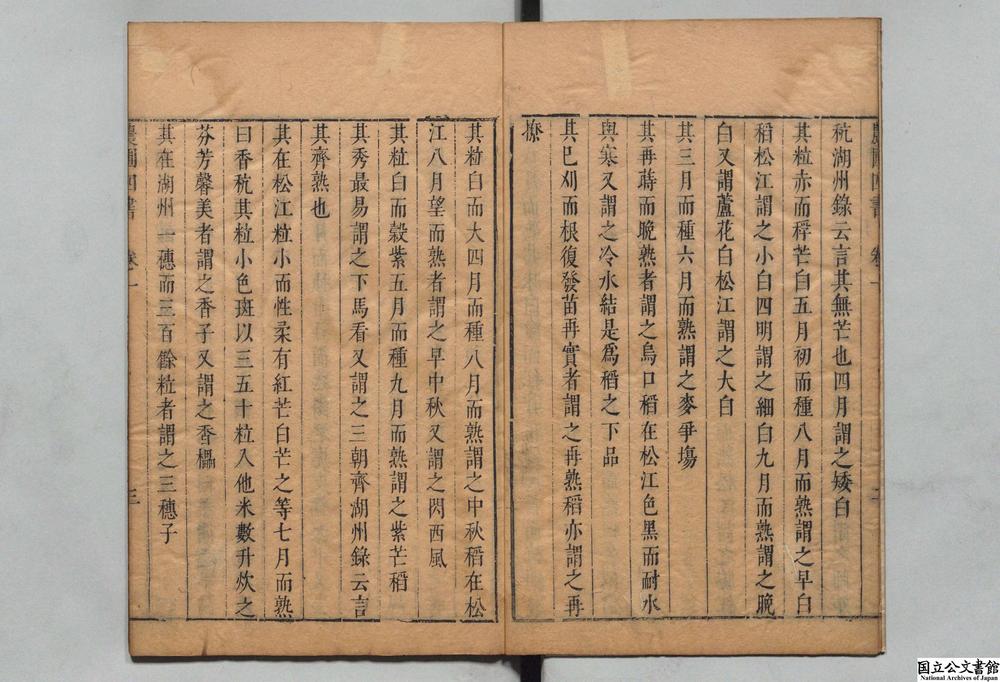 秔湖州錄云言其無芒也四月謂之矮白
其粒赤而稃芒白五月初而種八月而熟謂之早白
稻松江謂之小白四明謂之細白九月而熟謂之晚
白又謂蘆花白松江謂之大白
其三月而種六月而熟謂之麥爭塲
其再蒔而晚熟者謂之烏口稻在松江色黑而耐水
與寒又謂之冷水結是爲稻之下品
其已刈而根復發苗再實者謂之再熟稻亦謂之再
撩
其粒白而大四月而種八月而熟謂之中秋稻在松
江八月望而熟者謂之早中秋又謂之閃西風
其粒白而穀紫五月而種九月而熟謂之紫芒稻
其秀最易謂之下馬看又謂之三朝齊湖州錄云言
其齊熟也
其在松江粒小而性柔有紅芒白芒之等七月而熟
曰香秔其粒小色斑以三五十粒入他米數升炊之
芬芳馨美者謂之香子又謂之香櫑
其在湖州一穗而三百餘粒者謂之三穗子
農圃四書 卷一 三
国立公文書館
National Archives of Japan